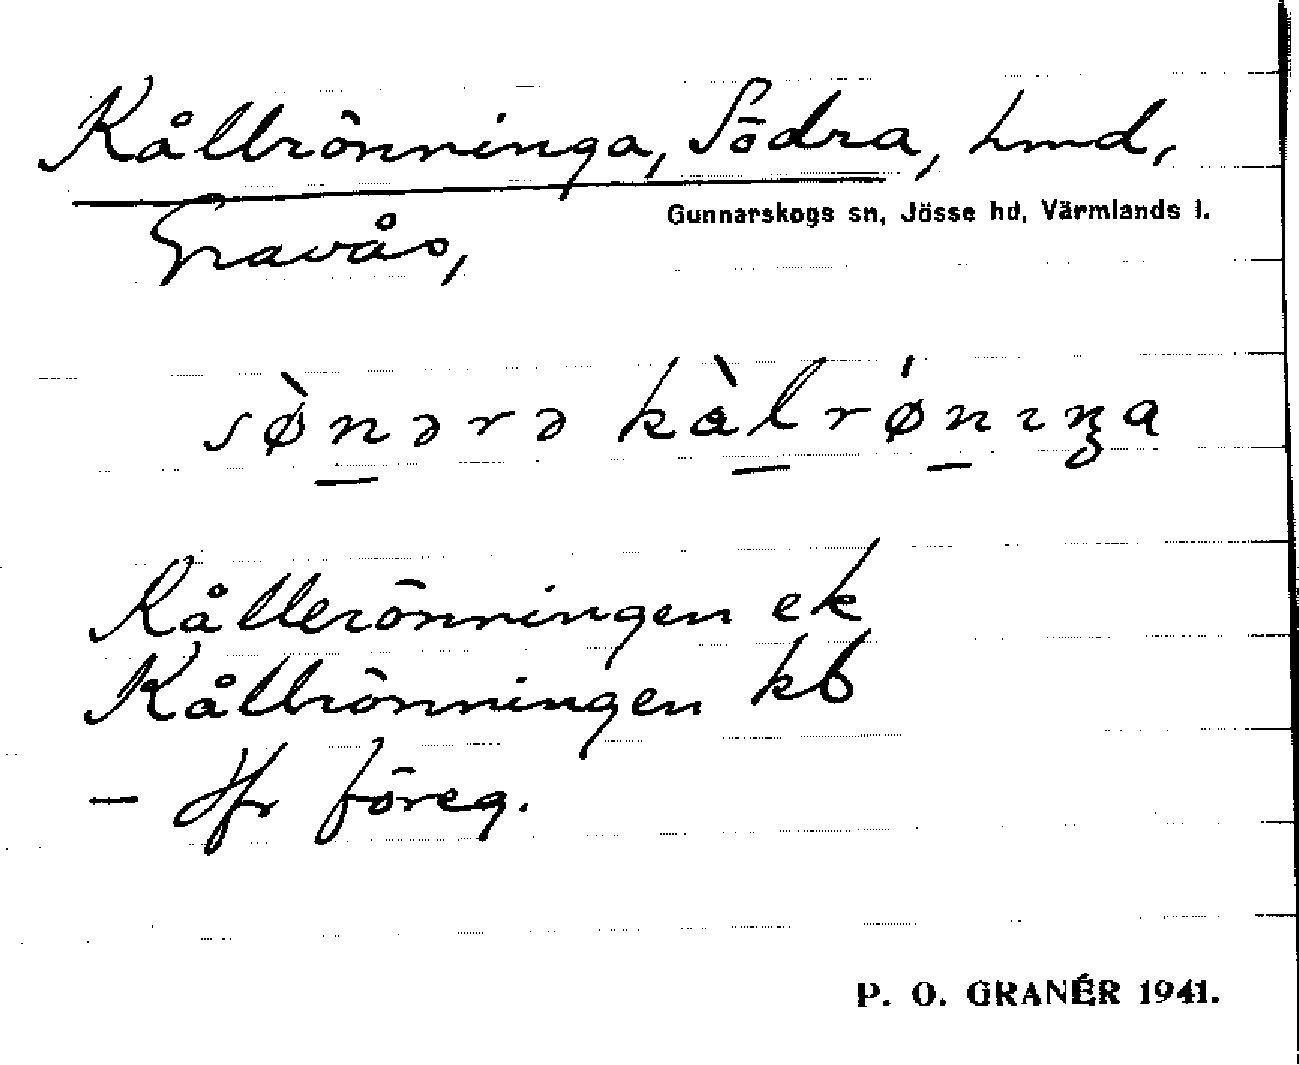 Kålbrönninga, Södra, hmd,
Gunnarskogs sn, Jösse hd, Värmlands l.
Gravås,
sø̀nərə kàlrǿnıŋa
Kållerönningen ek
Kålbrönningen kb
– Jfr föreg.
P. O. GRANÉR 1941.